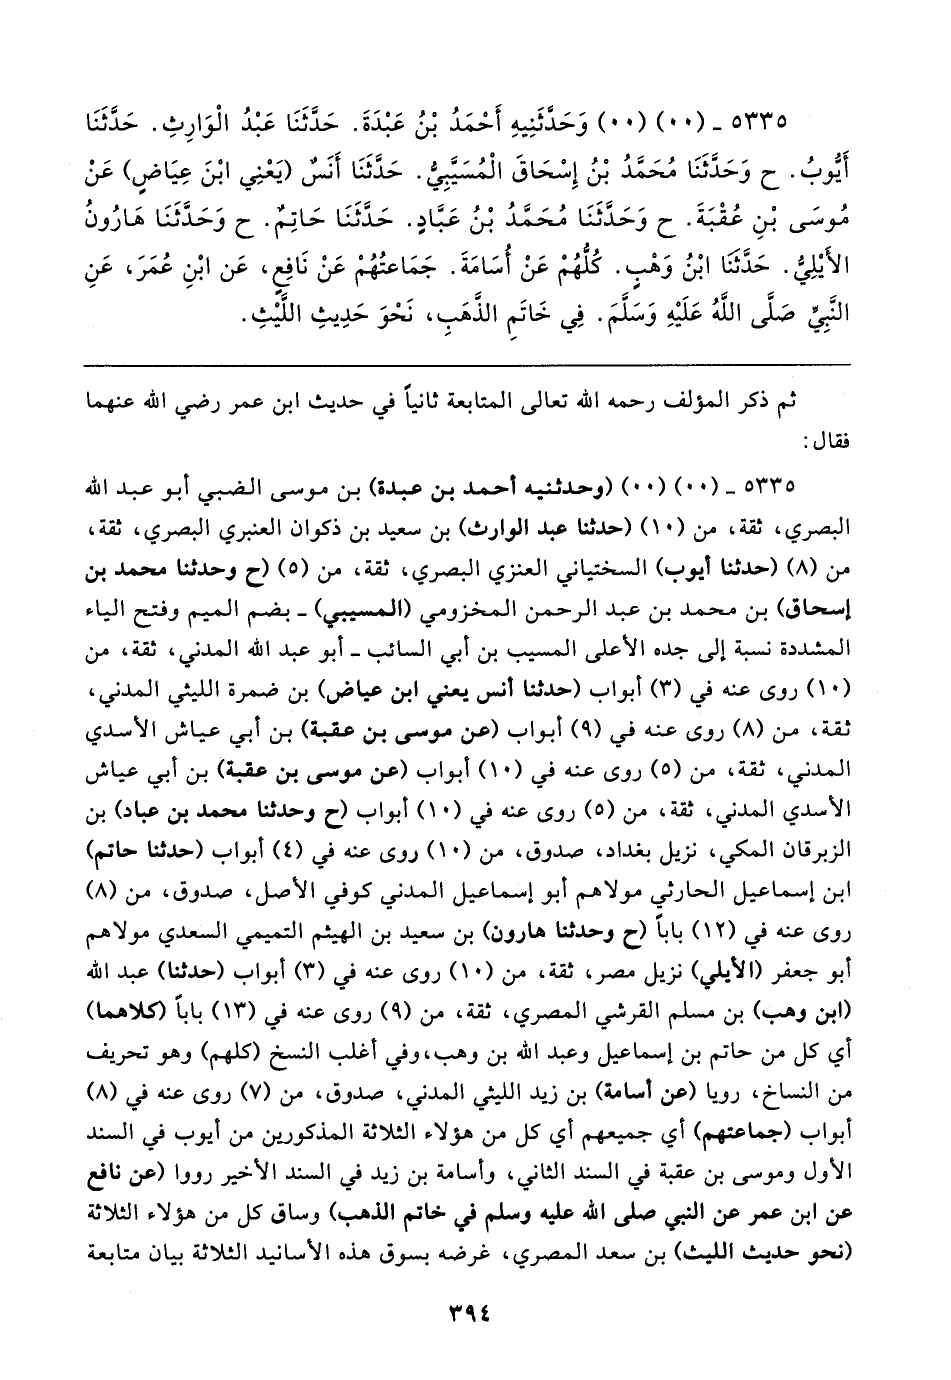 ٥٣٣٥ ـ (٠٠) (٠٠) وَحَدَّثَنِيهِ أَحْمَدُ بْنُ عَبْدَةَ. حَدَّثَنَا عَبْدُ الْوَارِثِ. حَدَّثَنَا
أَيُّوبُ. ح وَحَدَّثَنَا مُحَمَّدُ بْنُ إِسْحَاقَ الْمُسَيَّبِيُّ. حَدَّثَنَا أَنَسٌ (يَعْنِي ابْنَ عِيَاضٍ) عَنْ
مُوسَى بْنِ عُقْبَةَ. ح وَحَدَّثَنَا مُحَمَّدُ بْنُ عَبَّادٍ. حَدَّثَنَا حَاتِمٌ. ح وَحَدَّثَنَا هَارُونُ
الأَيْلِيُّ. حَدَّثَنَا ابْنُ وَهْبٍ. كُلُّهُمْ عَنْ أُسَامَةَ. جَمَاعَتُهُمْ عَنْ نَافِعٍ، عَنِ ابْنِ عُمَرَ، عَنِ
النَّبِيِّ صَلَّى اللَّهُ عَلَيْهِ وَسَلَّمَ. فِي خَاتِمِ الذَّهَبِ، نَحْوَ حَدِيثِ اللَّيْثِ.
ثم ذكر المؤلف رحمه الله تعالى المتابعة ثانياً في حديث ابن عمر رضي الله عنهما
فقال:
٥٣٣٥ ـ (٠٠) (٠٠) (وحدثنيه أحمد بن عبدة) بن موسى الضبي أبو عبد الله
البصري، ثقة، من (١٠) (حدثنا عبد الوارث) بن سعيد بن ذكوان العنبري البصري، ثقة،
من (٨) (حدثنا أيوب) السختياني العنزي البصري، ثقة، من (٥) (ح وحدثنا محمد بن
إسحاق) بن محمد بن عبد الرحمن المخزومي (المسيبي) ـ بضم الميم وفتح الياء
المشددة نسبة إلى جده الأعلى المسيب بن أبي السائب ـ أبو عبد الله المدني، ثقة، من
(١٠) روى عنه في (٣) أبواب (حدثنا أنس يعني ابن عياض) بن ضمرة الليثي المدني،
ثقة، من (٨) روى عنه في (٩) أبواب (عن موسى بن عقبة) بن أبي عياش الأسدي
المدني، ثقة، من (٥) روى عنه في (١٠) أبواب (عن موسى بن عقبة) بن أبي عياش
الأسدي المدني، ثقة، من (٥) روى عنه في (١٠) أبواب (ح وحدثنا محمد بن عباد) بن
الزبرقان المكي، نزيل بغداد، صدوق، من (١٠) روى عنه في (٤) أبواب (حدثنا حاتم)
ابن إسماعيل الحارثي مولاهم أبو إسماعيل المدني كوفي الأصل، صدوق، من (٨)
روى عنه في (١٢) باباً (ح وحدثنا هارون) بن سعيد بن الهيثم التميمي السعدي مولاهم
أبو جعفر (الأيلي) نزيل مصر، ثقة، من (١٠) روى عنه في (٣) أبواب (حدثنا) عبد الله
(ابن وهب) بن مسلم القرشي المصري، ثقة، من (٩) روى عنه في (١٣) باباً (كلاهما)
أي كل من حاتم بن إسماعيل وعبد الله بن وهب، وفي أغلب النسخ (كلهم) وهو تحريف
من النساخ، رويا (عن أسامة) بن زيد الليثي المدني، صدوق، من (٧) روى عنه في (٨)
أبواب (جماعتهم) أي جميعهم أي كل من هؤلاء الثلاثة المذكورين من أيوب في السند
الأول وموسى بن عقبة في السند الثاني، وأسامة بن زيد في السند الأخير رووا (عن نافع
عن ابن عمر عن النبي صلى الله عليه وسلم في خاتم الذهب) وساق كل من هؤلاء الثلاثة
(نحو حديث الليث) بن سعد المصري، غرضه بسوق هذه الأسانيد الثلاثة بيان متابعة
٣٩٤